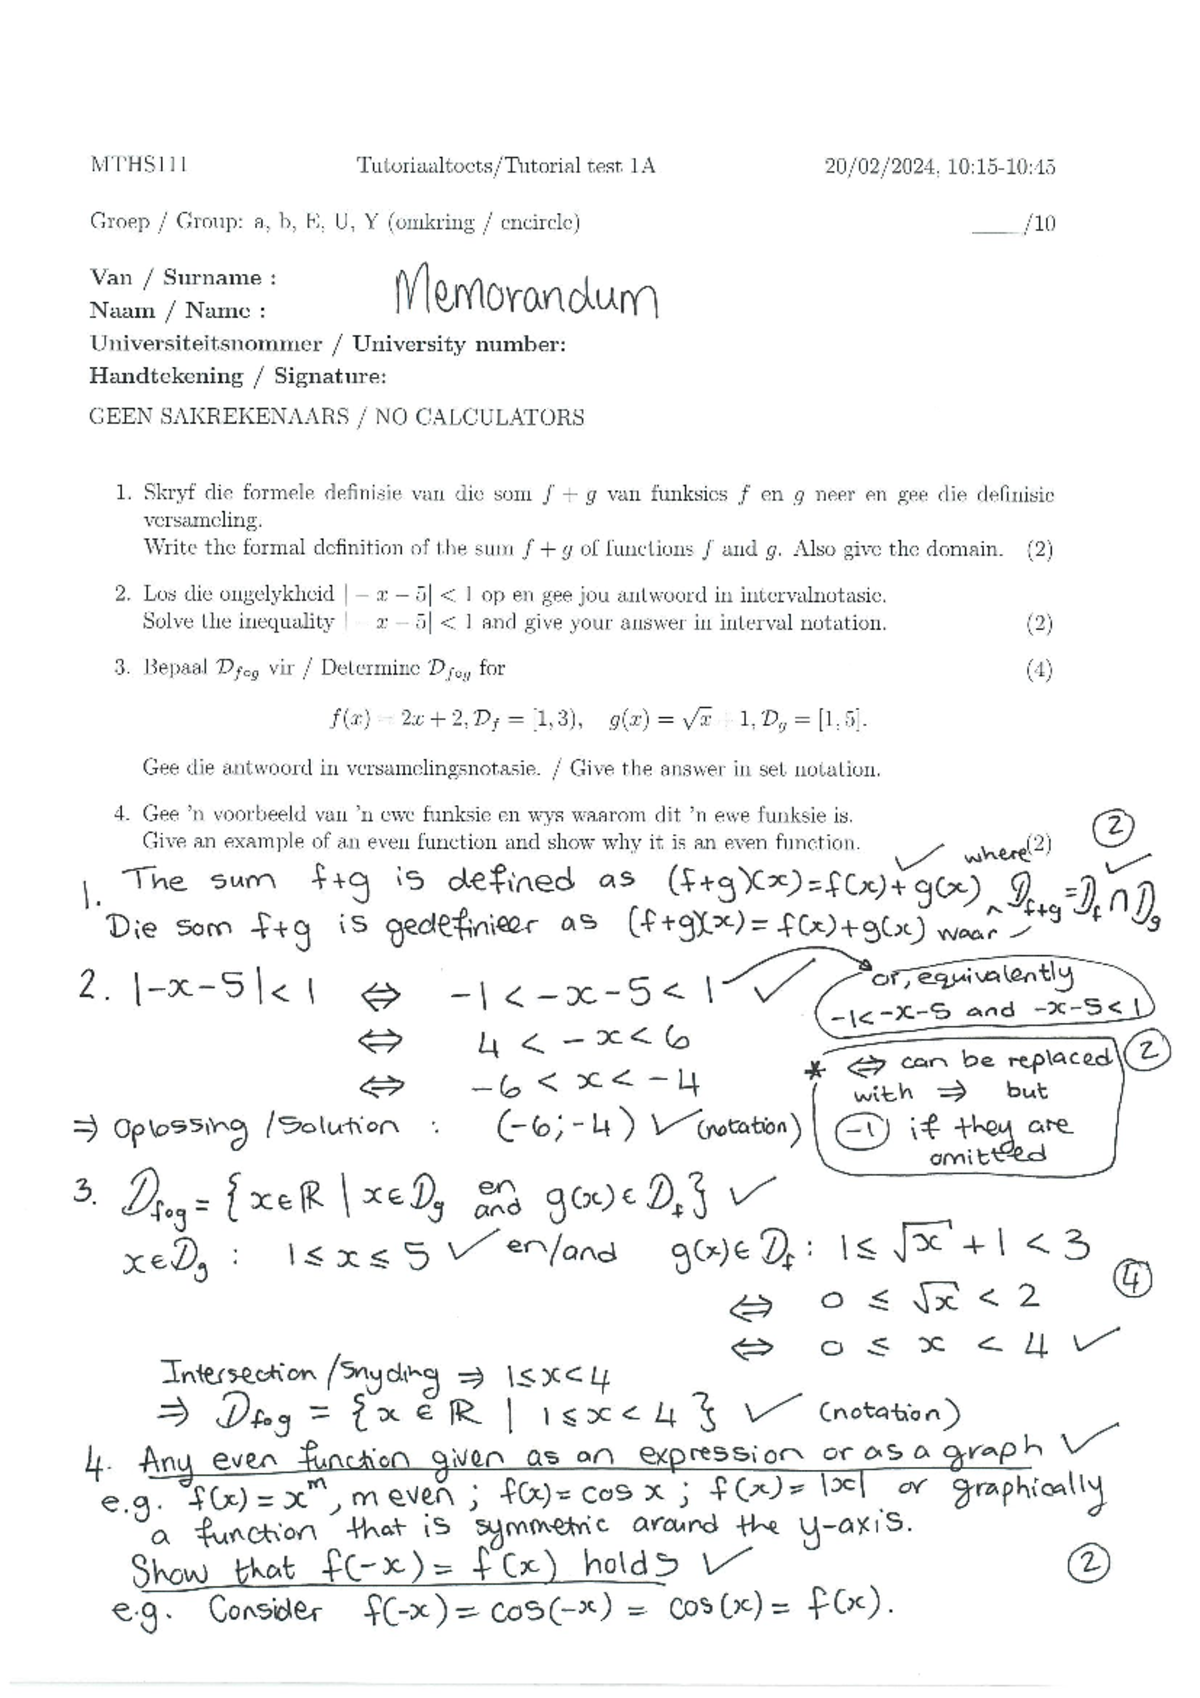 MTHS111 Tutoriaaltoets/Tutorial test 1A 20/02/2024, 10:15-10:45
Groep / Group: a, b, E, U, Y (omkring / encircle) ____/10
Van / Surname :
Memorandum
Naam / Name :
Universiteitsnommer / University number:
Handtekening / Signature:
GEEN SAKREKENAARS / NO CALCULATORS
1. Skryf die formele definisie van die som f + g van funksies f en g neer en gee die definisie
versameling.
Write the formal definition of the sum f + g of functions f and g. Also give the domain. (2)
2. Los die ongelykheid | − x − 5| < 1 op en gee jou antwoord in intervalnotasie.
Solve the inequality | − x − 5| < 1 and give your answer in interval notation. (2)
3. Bepaal D_{fog} vir / Determine D_{fog} for (4)
f(x) = 2x + 2, D_f = [1, 3), g(x) = √x + 1, D_g = [1, 5].
Gee die antwoord in versamelingsnotasie. / Give the answer in set notation.
4. Gee 'n voorbeeld van 'n ewe funksie en wys waarom dit 'n ewe funksie is.
Give an example of an even function and show why it is an even function. (2)
②
1. The sum f+g is defined as (f+g)(x)=f(x)+g(x) ✓ where D_{f+g}=D_f∩D_g ✓
Die som f+g is gedefinieer as (f+g)(x)=f(x)+g(x) waar
2. |-x-5|<1 ⇔ -1<-x-5<1 ✓ or, equivalently
-1<-x-5 and -x-5<1
⇔ 4<-x<6
⇔ -6<x<-4
* ⇔ can be replaced ②
with ⇒ but
-1 if they are
omitted
⇒ Oplossing/Solution : (-6;-4) ✓(notation)
3. D_{fog}={x∈ℝ | x∈D_g en/and g(x)∈D_f} ✓
x∈D_g : 1≤x≤5 ✓ en/and g(x)∈D_f : 1≤√x+1<3
④
⇔ 0≤√x<2
⇔ 0≤x<4 ✓
Intersection/Snyding ⇒ 1≤x<4
⇒ D_{fog}={x∈ℝ | 1≤x<4} ✓ (notation)
4. Any even function given as an expression or as a graph ✓
e.g. f(x)=x^m, m even; f(x)=cos x; f(x)=|x| or graphically
a function that is symmetric around the y-axis.
Show that f(-x)=f(x) holds ✓ ②
e.g. Consider f(-x)=cos(-x)=cos(x)=f(x).